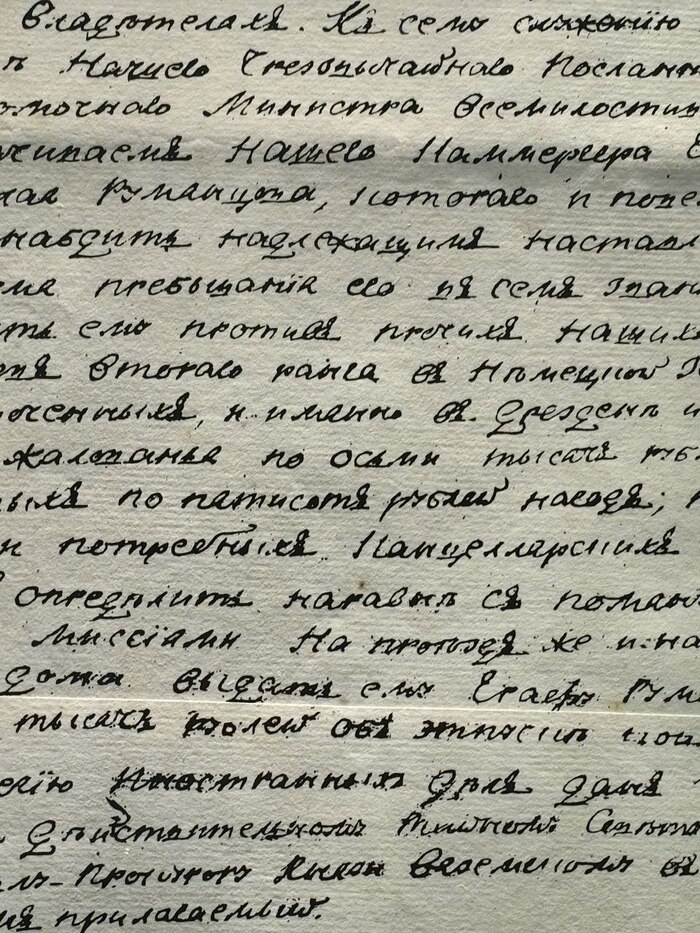 Владѣтеляхъ. Къ сему служенію
въ Нашего Чрезвычайнаго Посланн
омочнаго Министра Всемилостив
ачиваемъ Нашего Каммергера
лая Румянцова, котораго и пове
набдить надлежащимъ настав
емя пребыванія его въ семъ зван
ить ему противъ прочихъ Нашихъ
овъ втораго ранга въ Нѣмецкой
оченныхъ, и именно въ Дрезденѣ и
жалованья по осьми тысячъ руб
ыхъ по пятисотъ рублей на годъ;
и потребныхъ Канцелярскихъ
опредѣлить наравнѣ съ
Миссіами На проѣздъ же и на
дома выдать ему Егаеръ Рум
тысячъ рублей объ этпускѣ
егію Иностранныхъ дѣлъ данъ
дѣйствительномъ Тайномъ
Временомъ въ
прилагаемый.